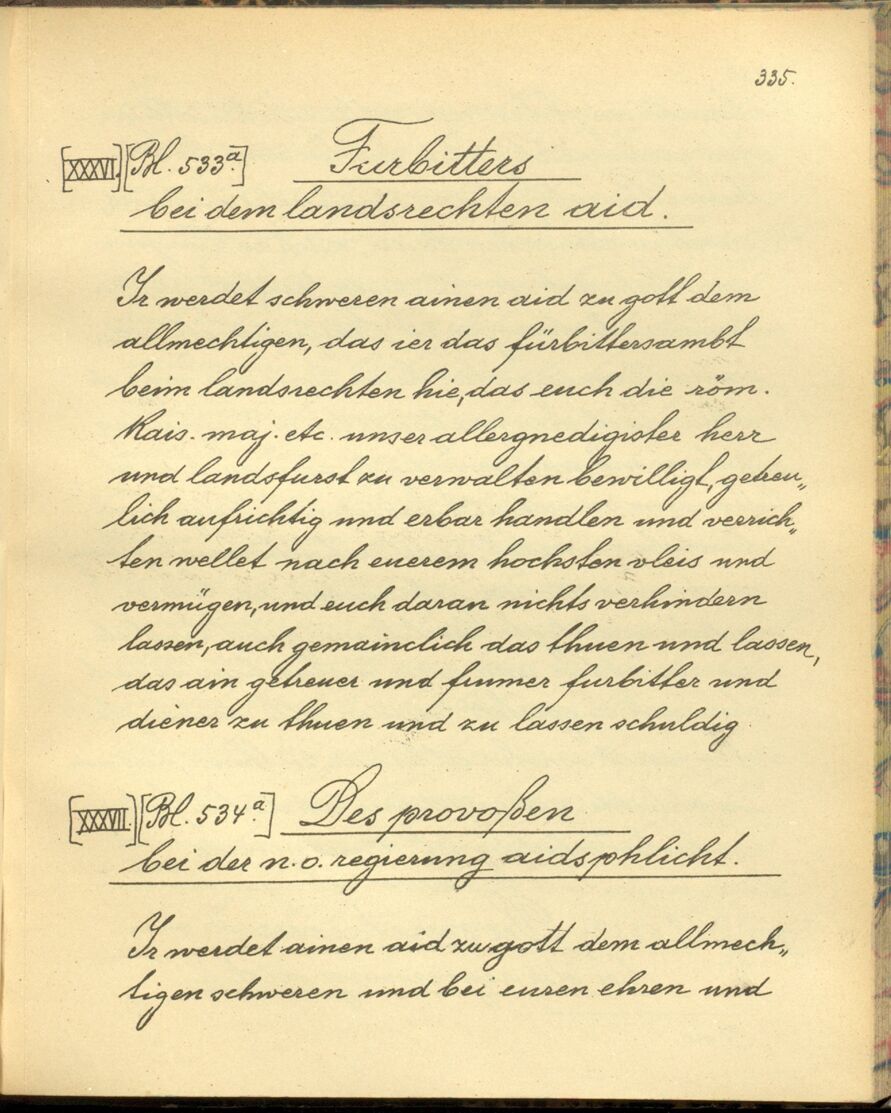 335.
[XXXVI.] [Bl. 533a.] Furbitters
bei dem landsrechten aid.
Ir werdet schweren ainen aid zu gott dem
allmechtigen, das ier das fürbittersambt
beim landsrechten hie, das euch die röm.
Kais. maj. etc. unser allergnedigister herr
und landsfurst zu verwalten bewilligt, getreu„
lich aufrichtig und erbar handlen und verrich„
ten wellet nach euerem hochsten vleis und
vermügen, und euch daran nichts verhindern
lassen, auch gemainclich das thuen und lassen,
das ain getreuer und frumer furbitter und
diener zu thuen und zu lassen schuldig
[XXXVII.] [Bl. 534a.] Des provoßen
bei der n. o. regierung aidsphlicht.
Ir werdet ainen aid zu gott dem allmech„
tigen schweren und bei euren ehren und